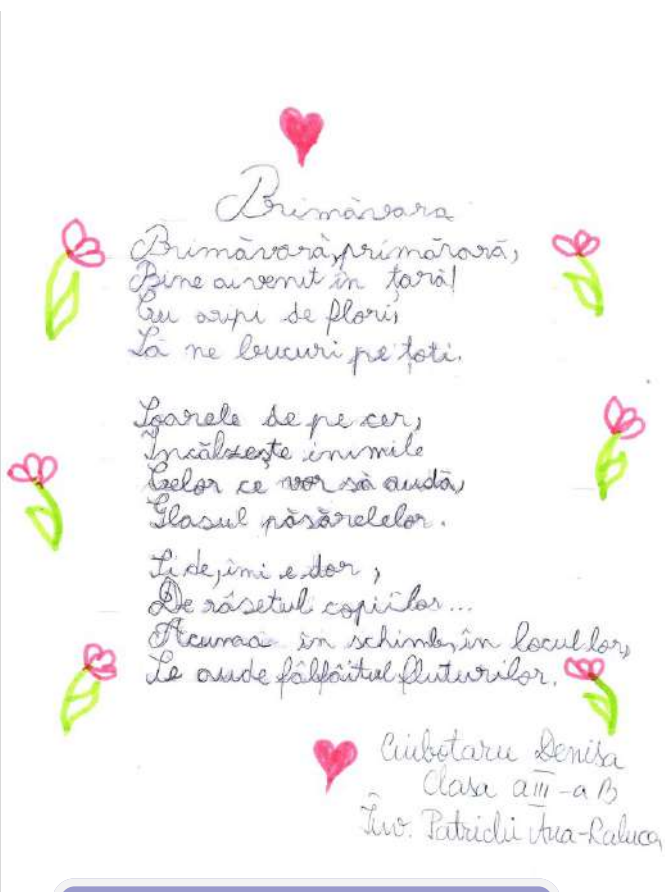 Primăvara
Primăvară, primăvară,
Bine ai venit în țară!
Cu aripi de flori,
Să ne bucuri pe toți.
Soarele de pe cer,
Încălzește inimile
Celor ce vor să audă,
Glasul păsărelelor.
Și de, îmi e dor,
De râsetul copiilor...
Acuma în schimb, în locul lor,
Se aude fâlfâitul fluturilor.
Ciubotaru Denisa
Clasa a III-a B
Înv. Patrichi Ana-Raluca